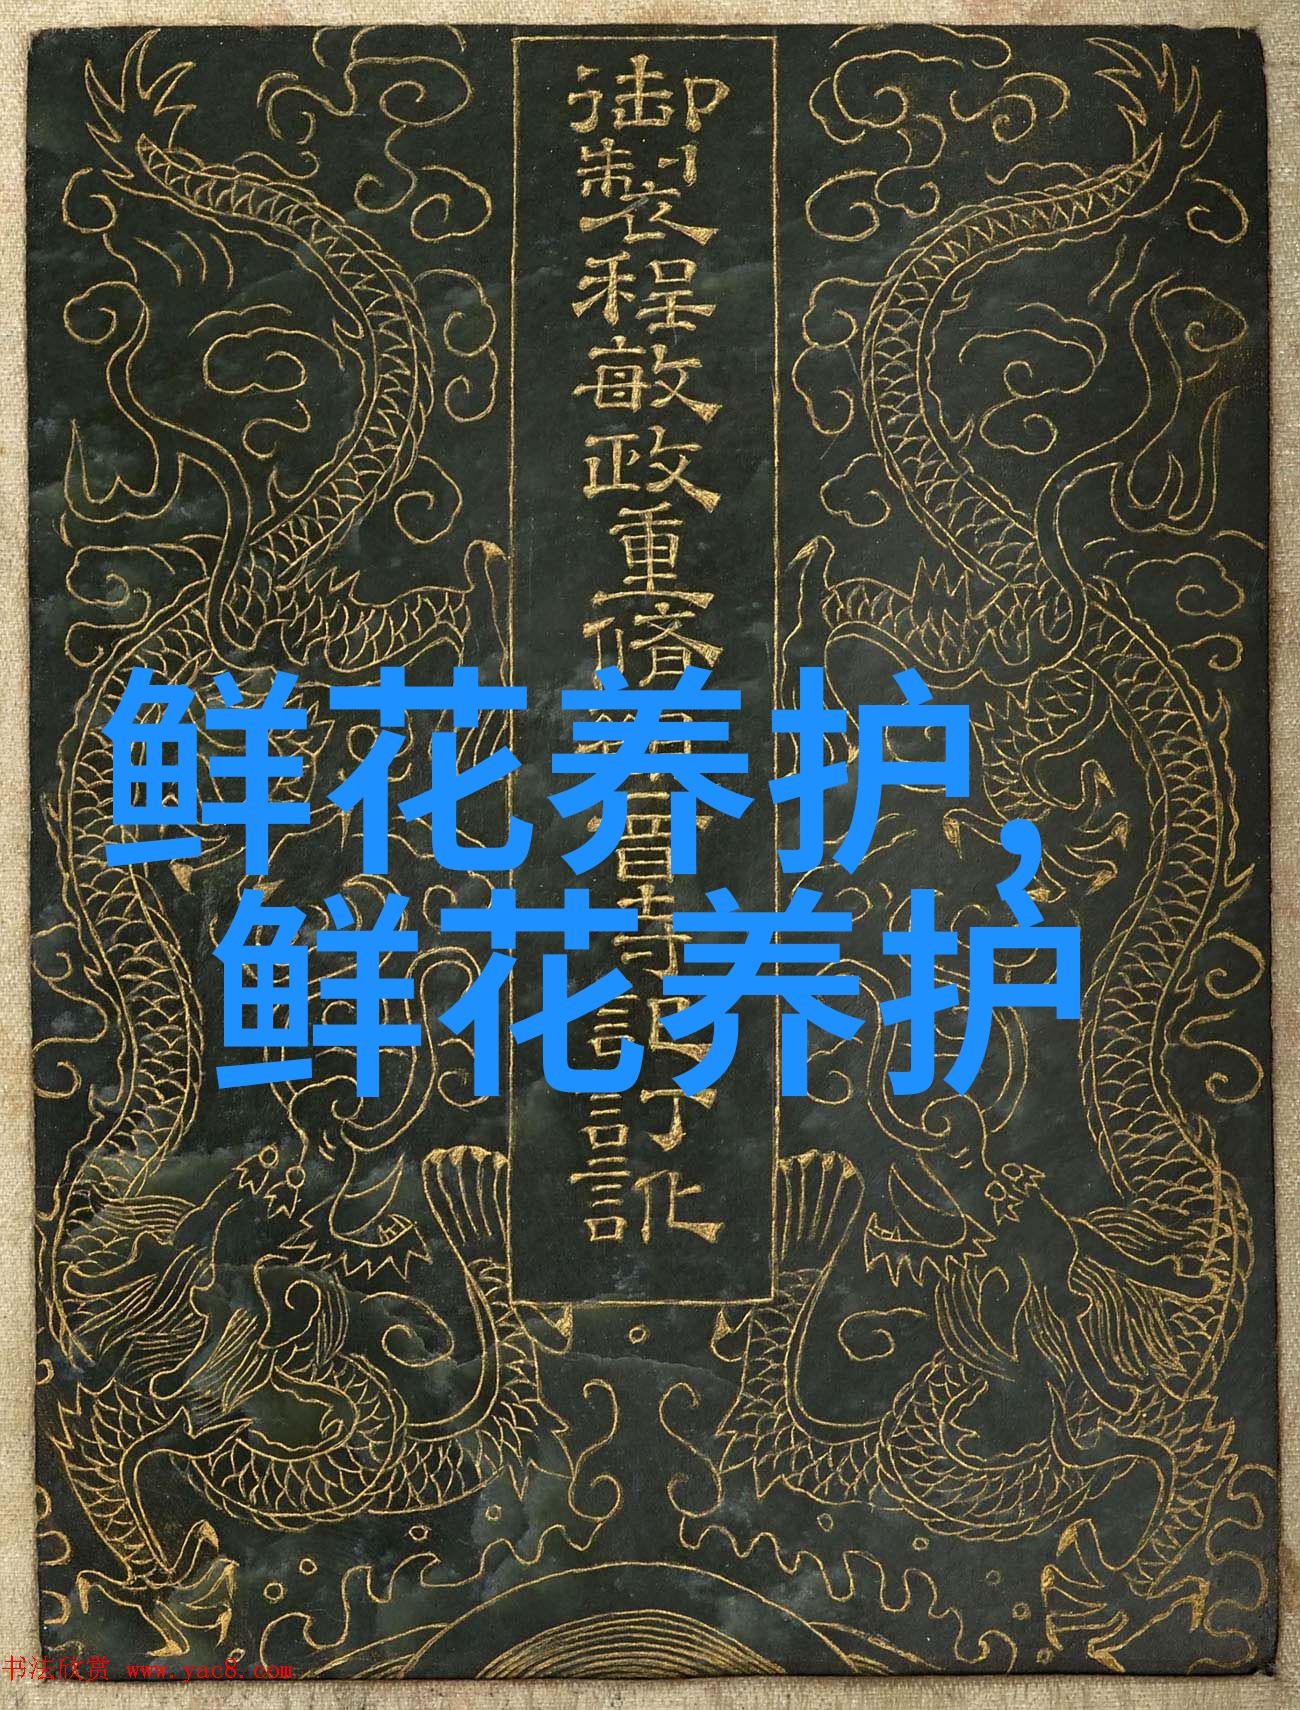 御製程敏政重修
寺記訂訛
鲜花养护，
鲜花养护
书法欣赏 www.yac8.com